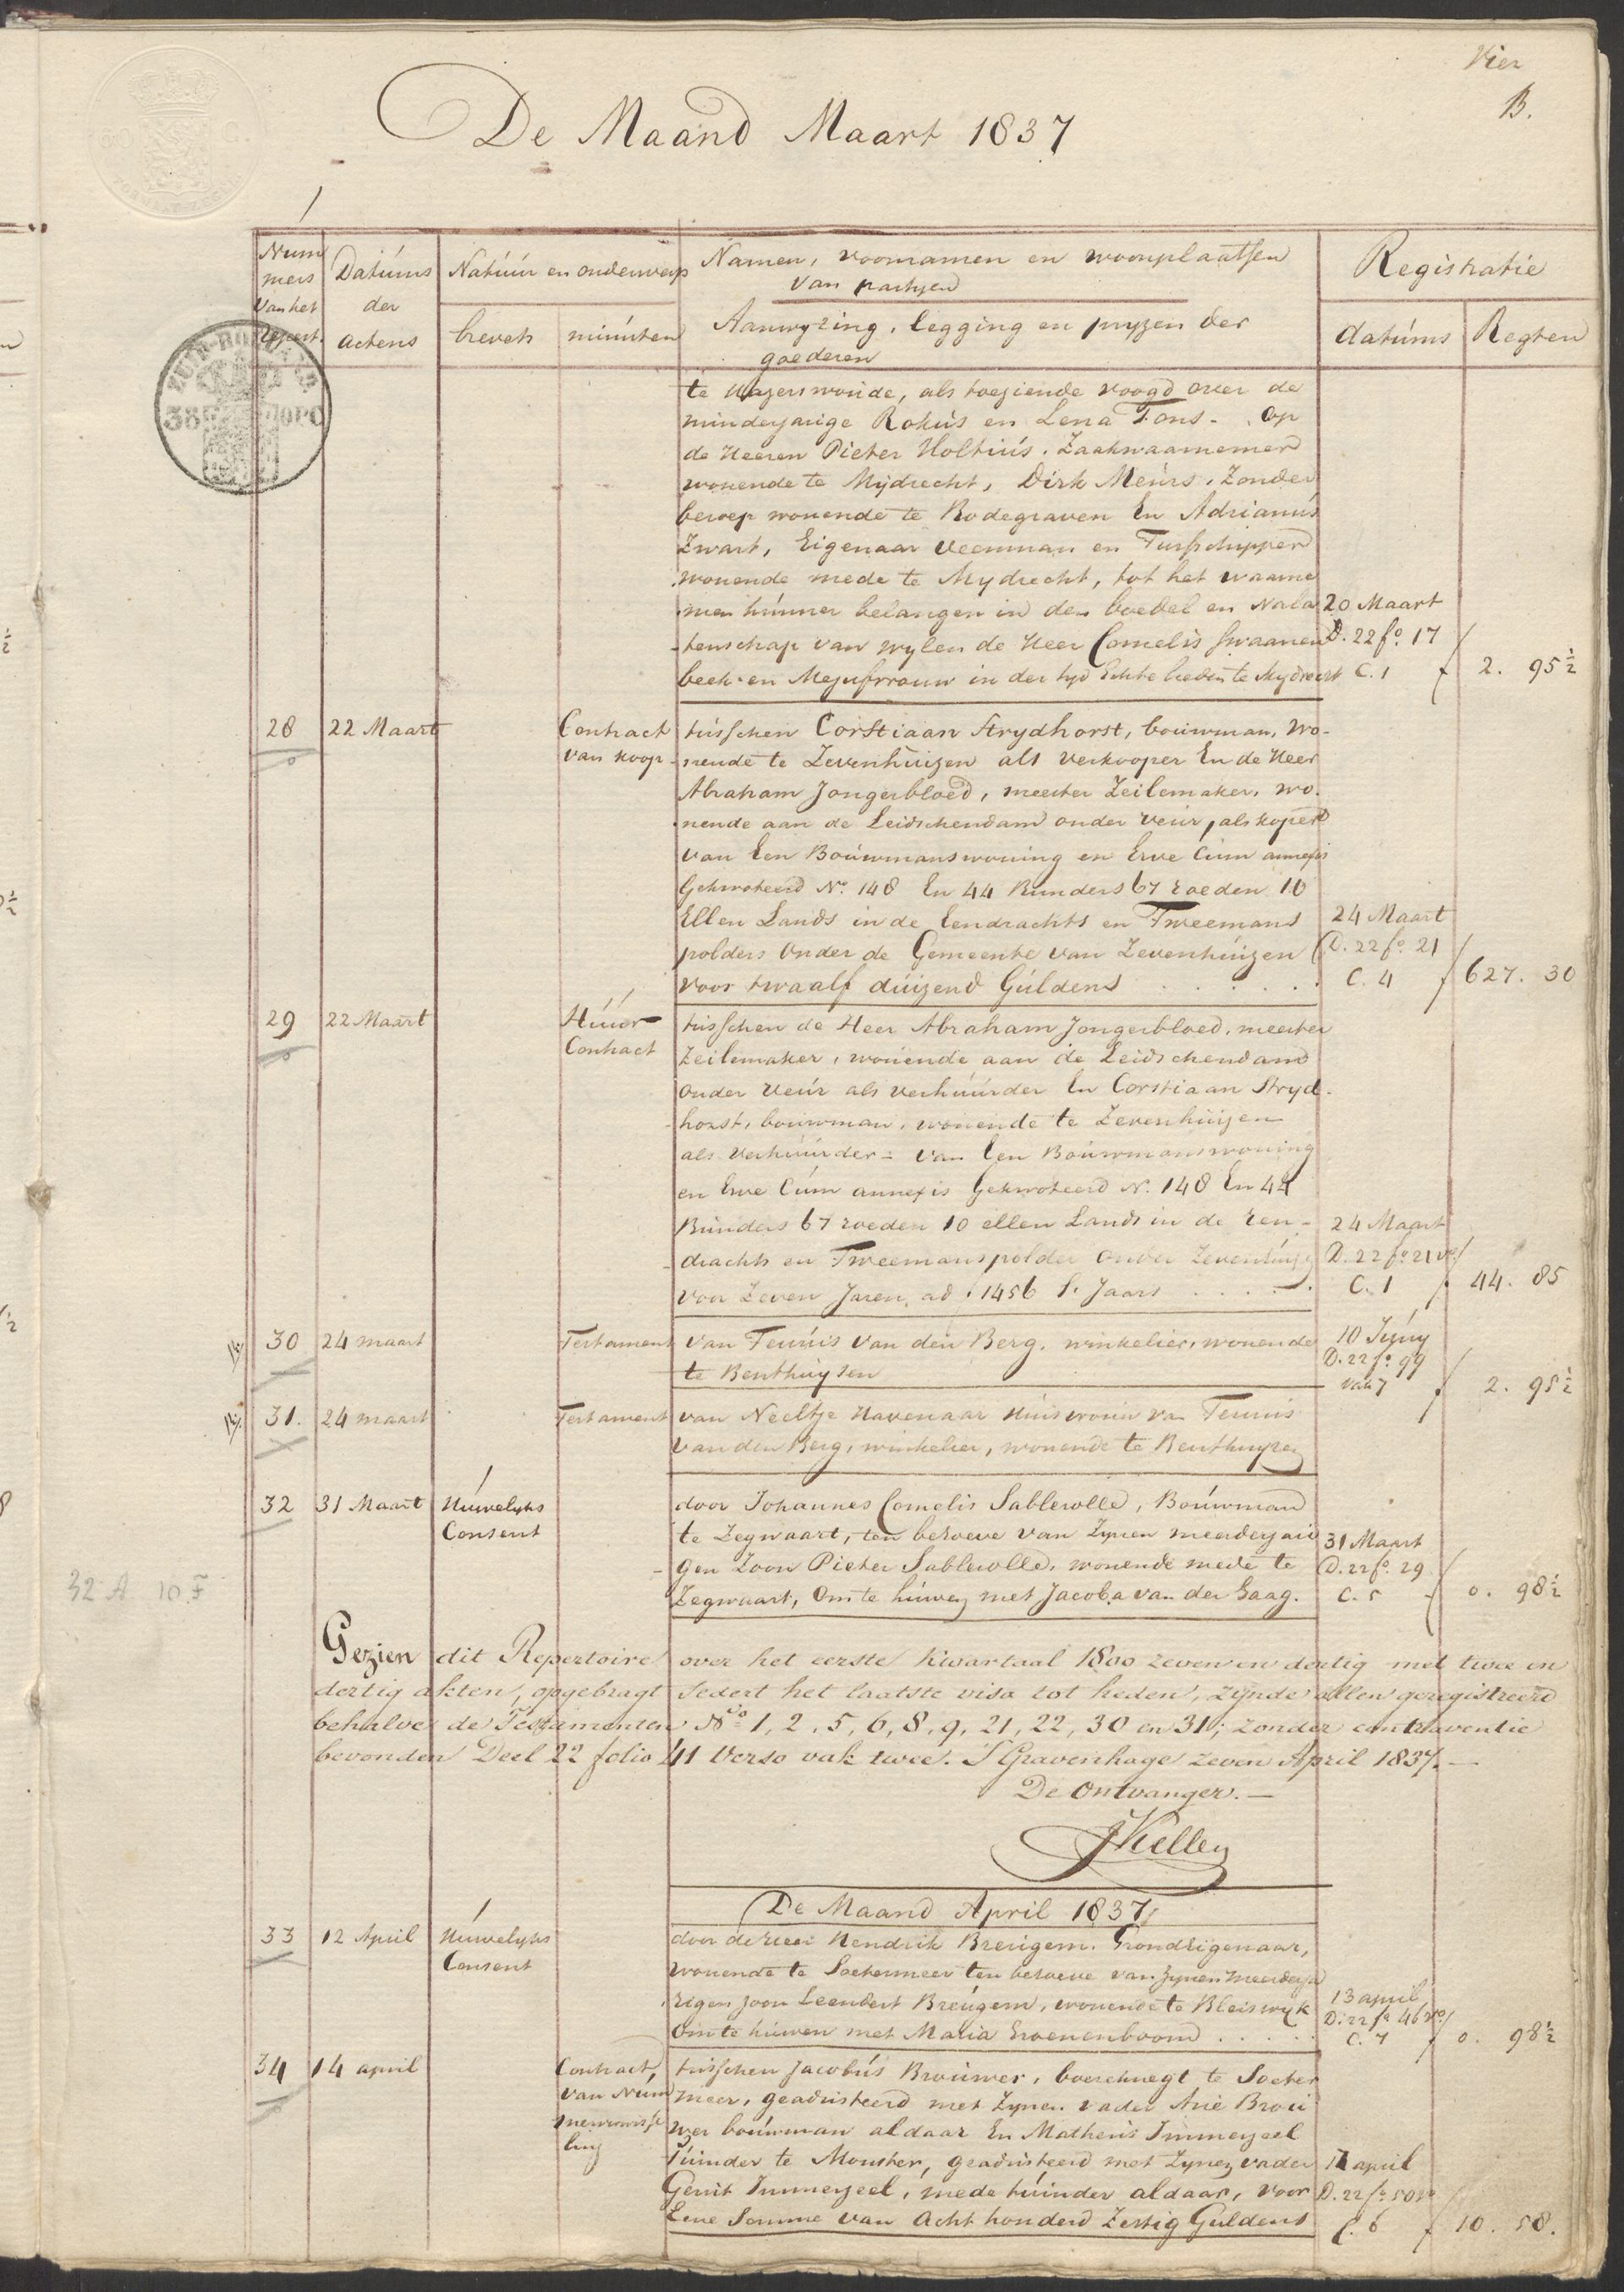 Vier
B.
De Maand Maart 1837
Num
mers
van het
Repert.
Datums
der
actens
Natuur en onderwerp
brevets
minuten
Namen, voornamen en woonplaatsen
van partyen
Aanwyzing, legging en pryzen der
goederen
Registratie
datums
Regten
te Hazerswoude, als toeziende voogd over de
minderjarige Rokus en Lena Tons - op
de Heeren Pieter Holtius, Zaakwaarnemer
wonende te Mijdrecht, Dirk Meurs, Zonder
beroep wonende te Bodegraven En Adrianus
Zwart, Eigenaar veenman en Turfschipper
wonende mede te Mydrecht, tot het waarne
men hunner belangen in den boedel en Nala
-tenschap van wylen de Heer Cornelis Swaanen
beek en Mejufvrouw in der tyd Echte lieden te Mydrecht
20 Maart
D. 22 fo. 17
C. 1
f 2. 95 ½
28
22 Maart
Contract
van koop
tusschen Corstiaan Strydhorst, bouwman, wo-
nende te Zevenhuizen als verkooper En de Heer
Abraham Jongerbloed, meester Zeilemaker, wo-
nende aan de Leidschendam onder veur, als koper
van Een Bouwmanswoning en Erve Cum annexis
Gekwoteerd No. 148 En 44 Bunders 67 roeden 10
Ellen Lands in de Eendrachts en Tweemans
polders Onder de Gemeente van Zevenhuizen
voor twaalf duizend Guldens . . . . .
24 Maart
D. 22 fo. 21
C. 4
f 627. 30
29
22 Maart
Huur
Contract
tusschen de Heer Abraham Jongerbloed, meester
Zeilemaker, wonende aan de Leidschendam
onder Veur als verhuurder En Corstiaan Stryd-
-horst, bouwman, wonende te Zevenhuizen
als verhuurder - van Een Bouwmanswoning
en Erve Cum annexis Gekwoteerd No. 148 En 44
Bunders 67 roeden 10 ellen Lands in de Een-
-drachts en Tweemanspolder onder Zevenhuizen
voor Zeven Jaren, ad f 1456 S. Jaars . . . .
24 Maart
D. 22 fo. 21 vo
C. 1
f 44. 85
30
24 maart
Testament
van Teunis van den Berg, winkelier, wonende
te Benthuyzen
10 Juny
D. 22 fo. 99
vak 7
f 2. 95 ½
31.
24 maart
Testament
van Neeltje Havenaar Huisvrouw van Teunis
van den Berg, winkelier, wonende te Benthuyzen
32
31 Maart
Huwelyks
Consent
door Johannes Cornelis Sablerolle, Bouwman
te Zegwaart, ten behoeve van Zynen meerderjari
-gen Zoon Pieter Sablerolle, wonende mede te
Zegwaart, Om te huwen met Jacoba van der Gaag.
31 Maart
D. 22 fo. 29
C. 5
f 0. 98 ½
32 A 10 F
Gezien dit Repertoire over het eerste Kwartaal 1800 zeven en dertig met twee en
dertig akten, opgebragt Sedert het laatste visa tot heden, zynde allen geregistreerd
behalve de Testamenten Nos. 1, 2, 5, 6, 8, 9, 21, 22, 30 en 31; zonder contraventie
bevonden Deel 22 folio 41 Verso vak twee. S Gravenhage zeven April 1837. —
De Ontvanger. —
JKeller
De Maand April 1837
33
12 April
Huwelyks
Consent
door de Heer Hendrik Breugem, Grondeigenaar,
wonende te Soetermeer ten behoeve van Zynen meerderja
rigen zoon Leendert Breugem, wonende te Bleiswyk
om te huwen met Maria Groenenboom . . . . .
13 april
D. 22 fo. 46 vo
C. 7
f 0. 98 ½
34
14 april
Contract
van Num
merwisse
ling
tusschen Jacobus Brouwer, boereknegt te Soeter
meer, geadsisteerd met Zynen vader Arie Brou
wer bouwman aldaar En Matheus Immerzeel
Tuinder te Monster, geadsisteerd met Zynen vader
Gerrit Immerzeel, mede tuinder aldaar, voor
Eene Somme van Acht honderd Zestig Guldens
17 april
D. 22 fo. 50 vo
C. 6
f 10. 58.